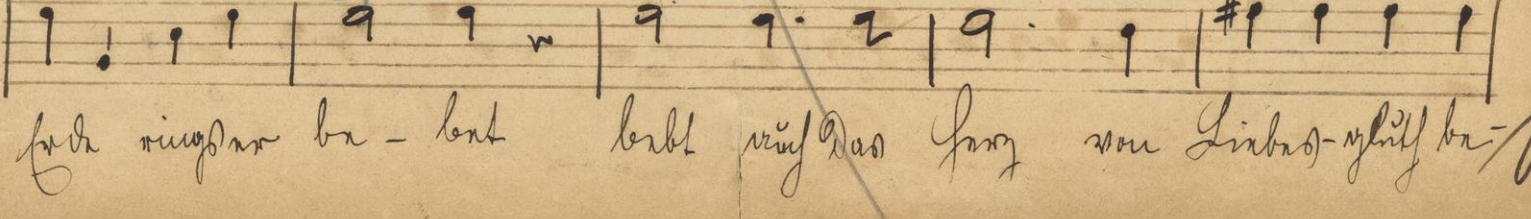 Erde rings er be - bet bebt auch das Herz von Liebes-gluth be-